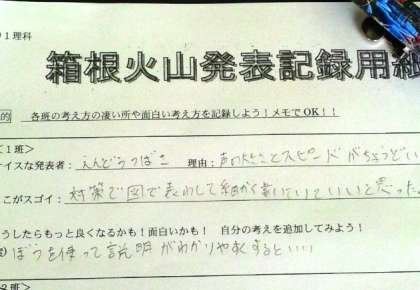 １理科
箱根火山発表記録用紙
的 各班の考え方の凄い所や面白い考え方を記録しよう！メモでOK！！
＜１班＞
イスな発表者： えんどうつばさ 理由：声の大きさとスピードがちょうどい
こがスゴイ： 対策で図で表わして細かく書いていていいと思った。
うしたらもっと良くなるかも！面白いかも！ 自分の考えを追加してみよう！
ぼうを使って説明がわかりやすくするといい
２班＞